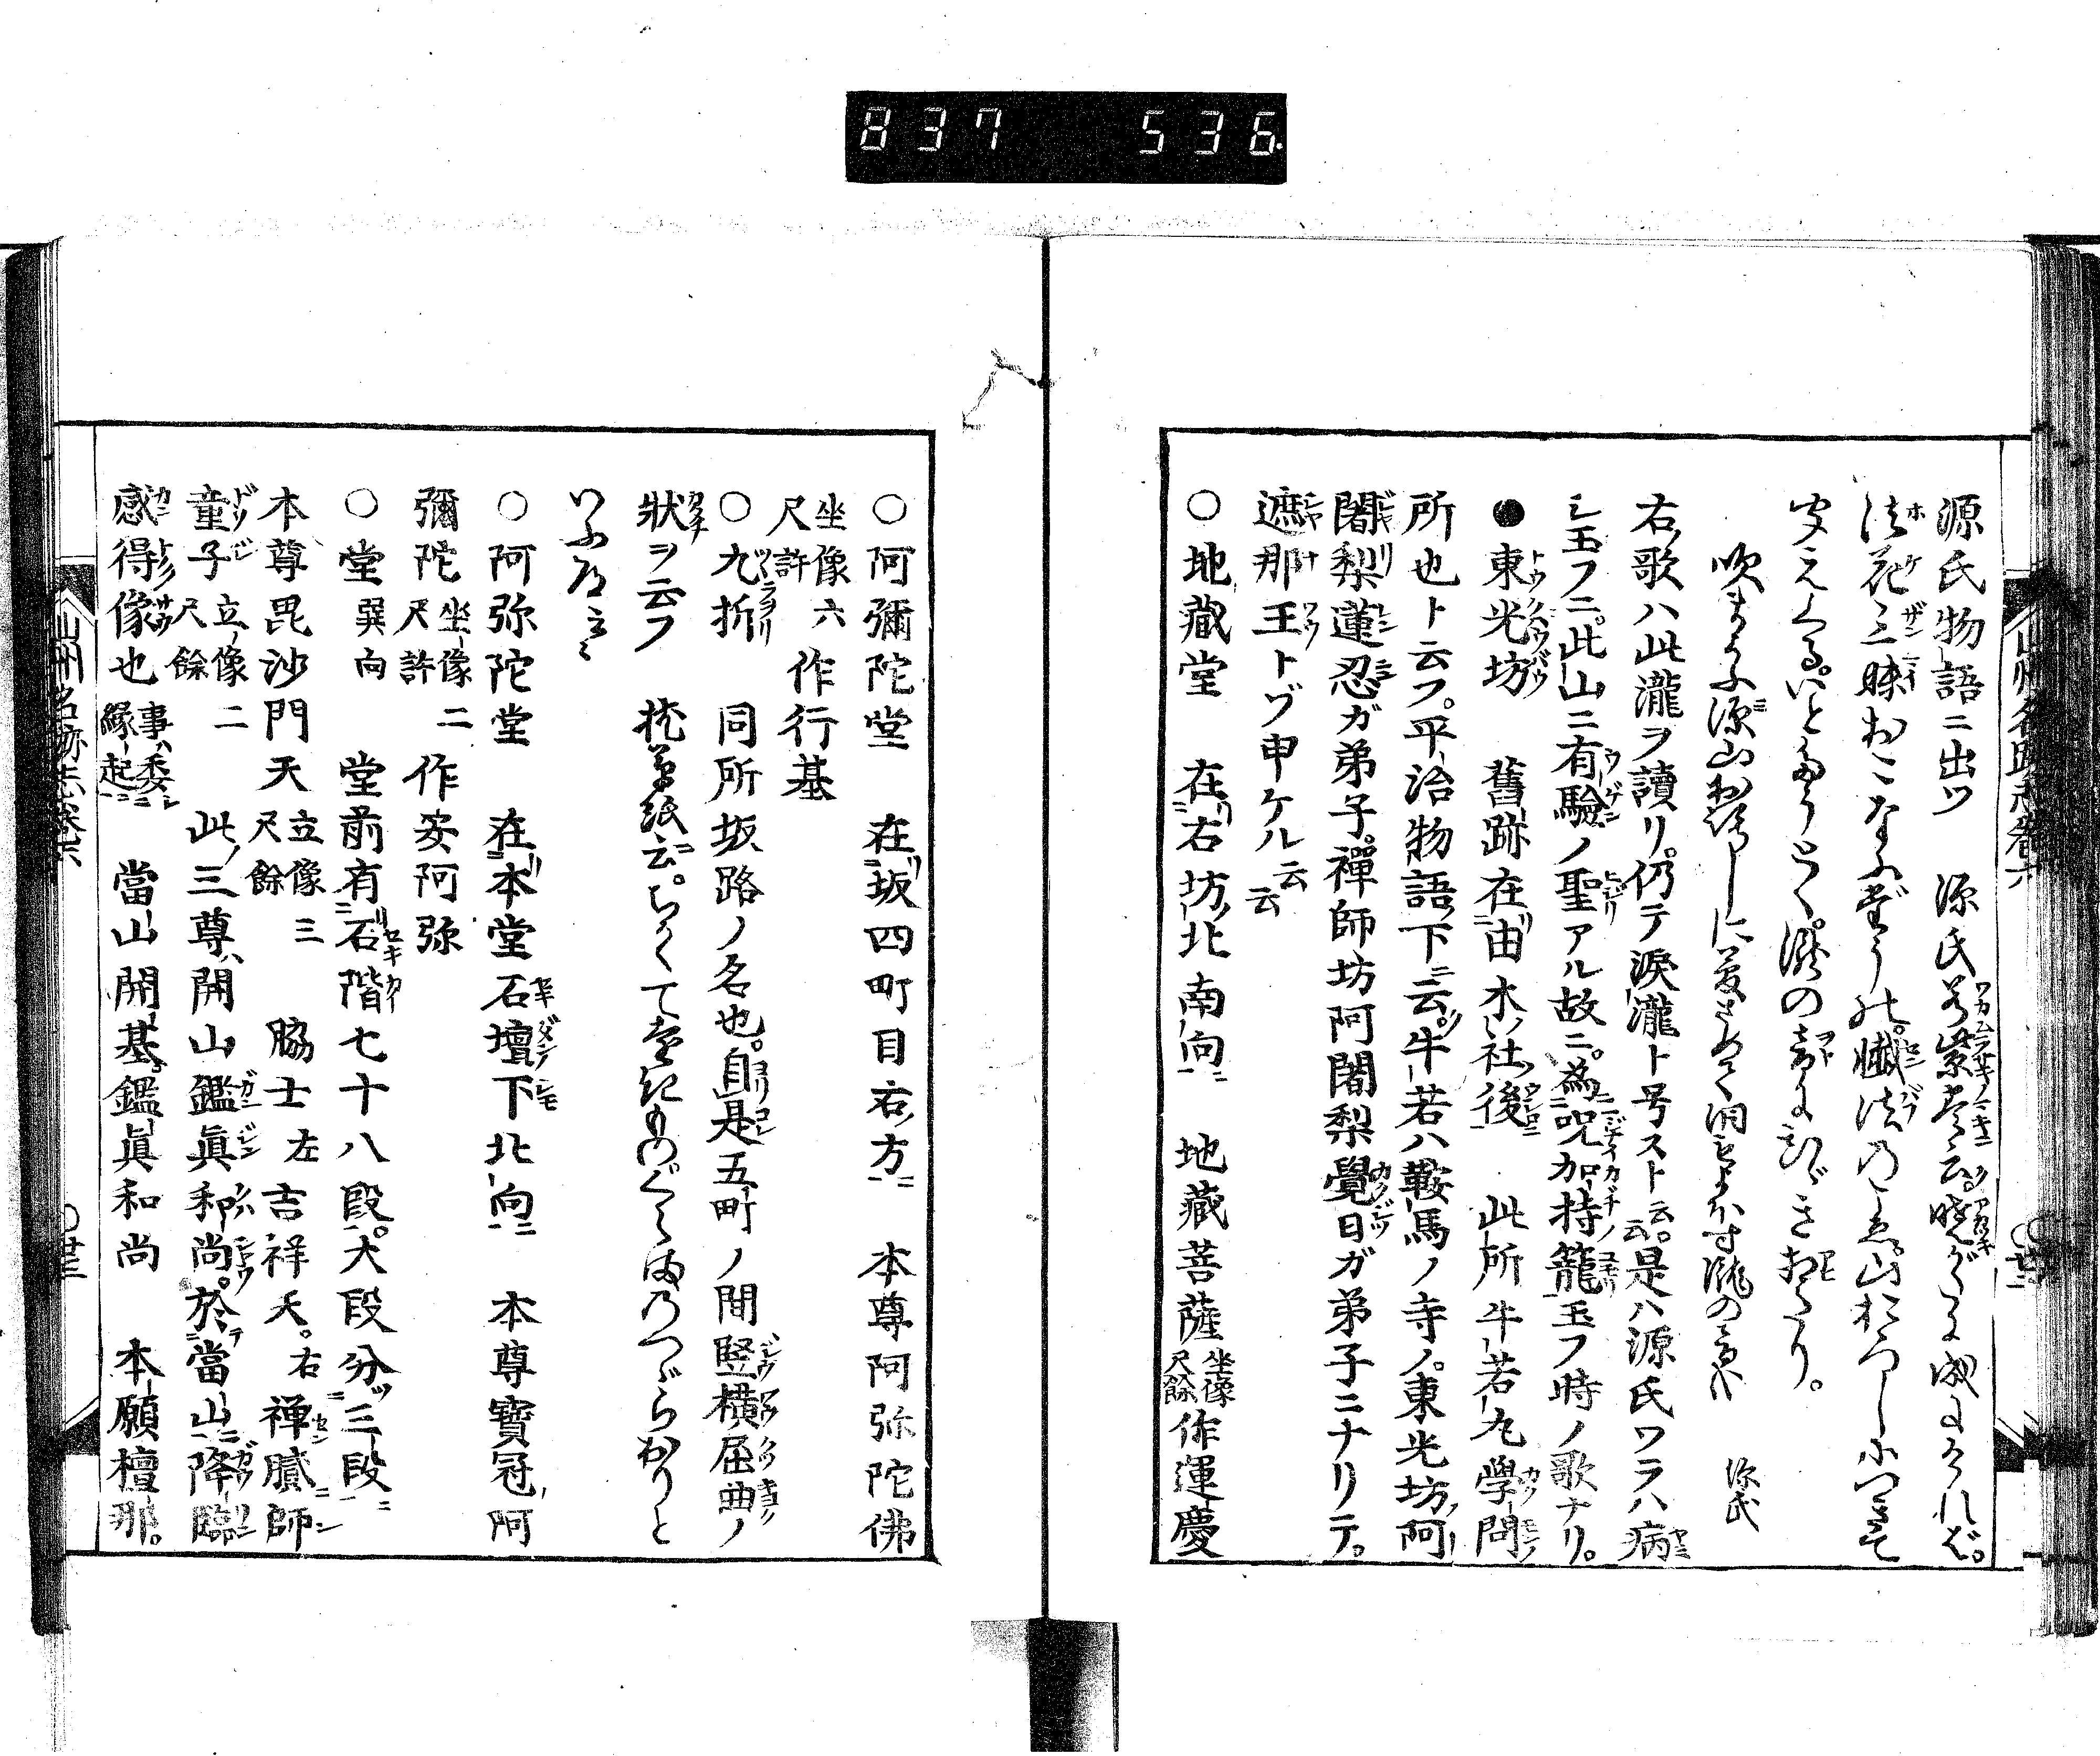 837 536
源氏物語ニ出ツ 源氏若紫巻云。暁がたに成にければ。
法花三昧おこなふだうの。懺法のこゑ山おろしにつきて
聞えくる。いとたうとく。瀧の音にひゞきあひたり。
吹まよふ深山おろしに夢さめて涙もよほす瀧の音哉 源氏
右歌ハ此瀧ヲ讀リ。仍テ涙瀧ト号スト云云。是ハ源氏ワラハ病
シ玉フニ。此山ニ有驗ノ聖アル故ニ。為呪加持籠玉フ時ノ歌ナリ。
●東光坊 舊跡在由木社後 此所牛若丸學問
所也ト云フ。平治物語下ニ云。牛若ハ鞍馬ノ寺ノ。東光坊阿
闍梨蓮忍ガ弟子。禪師坊阿闍梨覺日ガ弟子ニナリテ。
遮那王トゾ申ケル云云
○地蔵堂 在右坊北南向 地蔵菩薩坐像尺餘作運慶
山州名跡志巻六 ○廿二
○阿彌陀堂 在坂四町目右方 本尊阿弥陀佛
坐像六尺許 作行基
○九折 同所坂路ノ名也。自是五町ノ間竪横屈曲ノ
狀ヲ云フ 枕草紙云。ちかくて遠きものくらまのつゞらおりと
いふ道云云
○阿弥陀堂 在本堂石壇下北向 本尊寶冠阿
彌陀坐像二尺許 作安阿弥
○堂巽向 堂前有石階七十八段。大段分三段
本尊毘沙門天立像三尺餘 脇士左吉祥天。右禅膩師
童子立像二尺餘 此三尊開山鑑眞和尚。於當山降臨
感得像也事委縁起 當山開基鑑眞和尚 本願檀那。
山州名跡志巻六 ○廿三